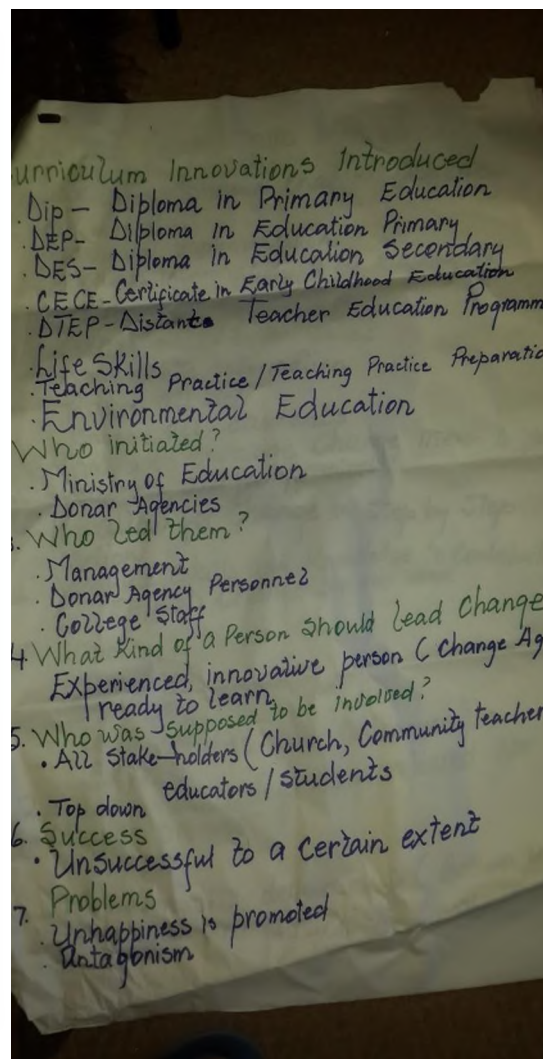 urriculum Innovations Introduced
. Dip – Diploma in Primary Education
. DEP – Diploma in Education Primary
. DES – Diploma in Education Secondary
. CECE – Certificate in Early Childhood Education
. DTEP – Distante Teacher Education Programm
. Life Skills
. Teaching Practice / Teaching Practice Preparatio
. Environmental Education
Who initiated?
. Ministry of Education
. Donar Agencies
. Who led them?
. Management
. Donar Agency Personnel
. College Staff
4. What Kind of a Person Should lead Change
Experienced, innovative person ( Change Ag
ready to learn
5. Who was supposed to be involved?
• All Stake-holders ( Church, Community teacher
educators / students
. Top down
6. Success
• Unsuccessful to a certain extent
7. Problems
. Unhappiness is promoted
. Antagonism